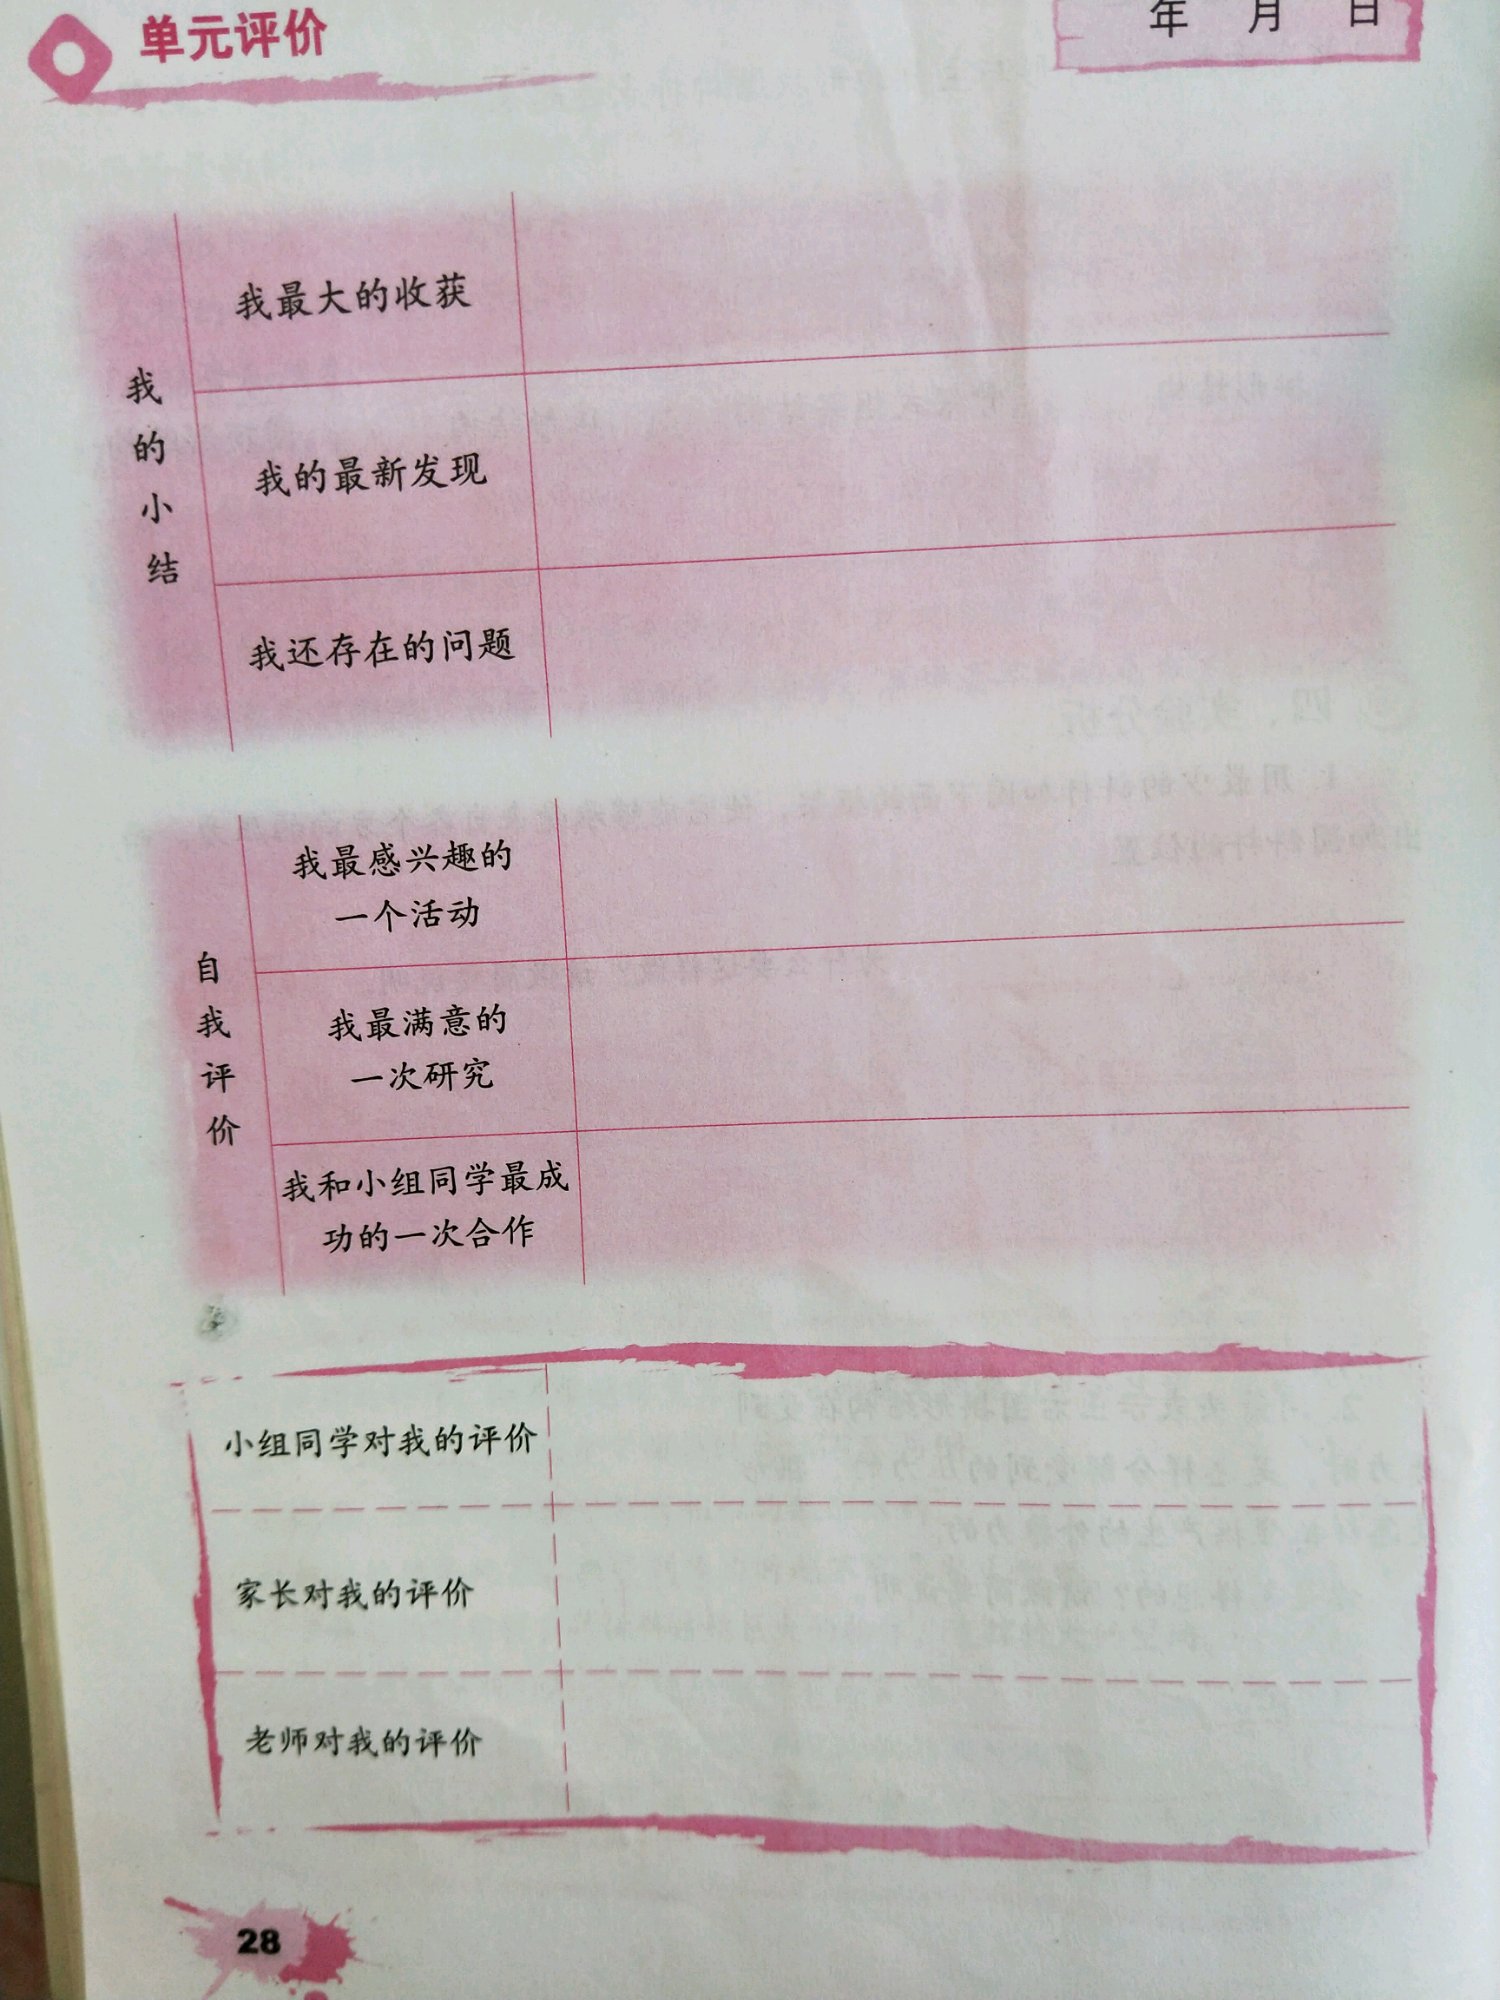 单元评价
年 月 日
我的小结
我最大的收获
我的最新发现
我还存在的问题
自我评价
我最感兴趣的
一个活动
我最满意的
一次研究
我和小组同学最成
功的一次合作
小组同学对我的评价
家长对我的评价
老师对我的评价
28